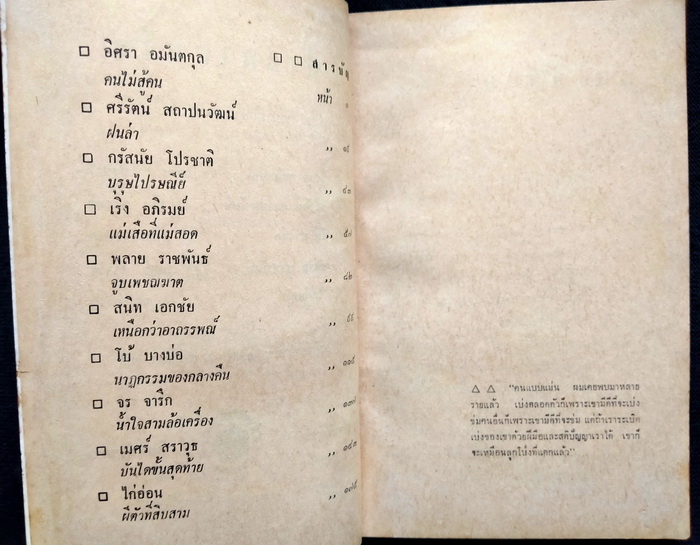 □ □ สารบัญ
□ อิศรา อมันตกุล
คนไม่สู้คน หน้า ๑
□ ศรีรัตน์ สถาปนวัฒน์
ฝนล่า ,,
□ กรัสนัย โปรชาติ
บุรุษไปรษณีย์ ,, ๔๓
□ เริง อภิรมย์
แม่เสือที่แม่สอด ,,
□ พลาย ราชพันธ์
จูบเพชฌฆาต ,, ๘๒
□ สนิท เอกชัย
เหนือกว่าอาถรรพณ์ ,,
□ โบ้ บางบ่อ
นาฏกรรมของกลางคืน ,,
□ จร จาริก
น้ำใจสามล้อเครื่อง ,,
□ เมศร์ สราวุธ
บันไดขั้นสุดท้าย ,,
□ ไก่อ่อน
ผีตัวที่สิบสาม ,,
△ △ "คนแบบแม่น ผมเคยพบมาหลาย
รายแล้ว เบ่งตลอดตัวก็เพราะเขามีดีที่จะเบ่ง
ข่มคนอื่นก็เพราะเขามีดีที่จะข่ม แต่ถ้าเราระเบิด
เบ่งของเขาด้วยฝีมือและสติปัญญาเราได้ เขาก็
จะเหมือนลูกโป่งที่แตกแล้ว"